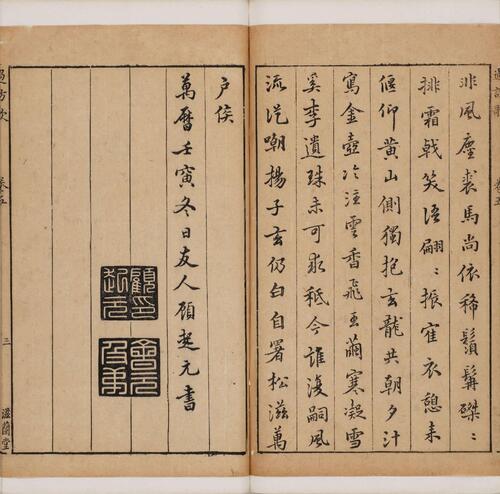 非風塵裘馬尚依稀鬚髯磔〻
排霜戟笑語翩〻振寉衣憩来
偃仰黄山側獨抱玄龍共朝夕汁
寫金壺冷注雲香飛玉繭寒凝雪
奚李遺珠未可求秪今誰復嗣風
流從嘲揚子玄仍白自署松滋萬
户侯
萬曆壬寅冬日友人顧起元書
顧印起元
卷五
三
滋蘭堂